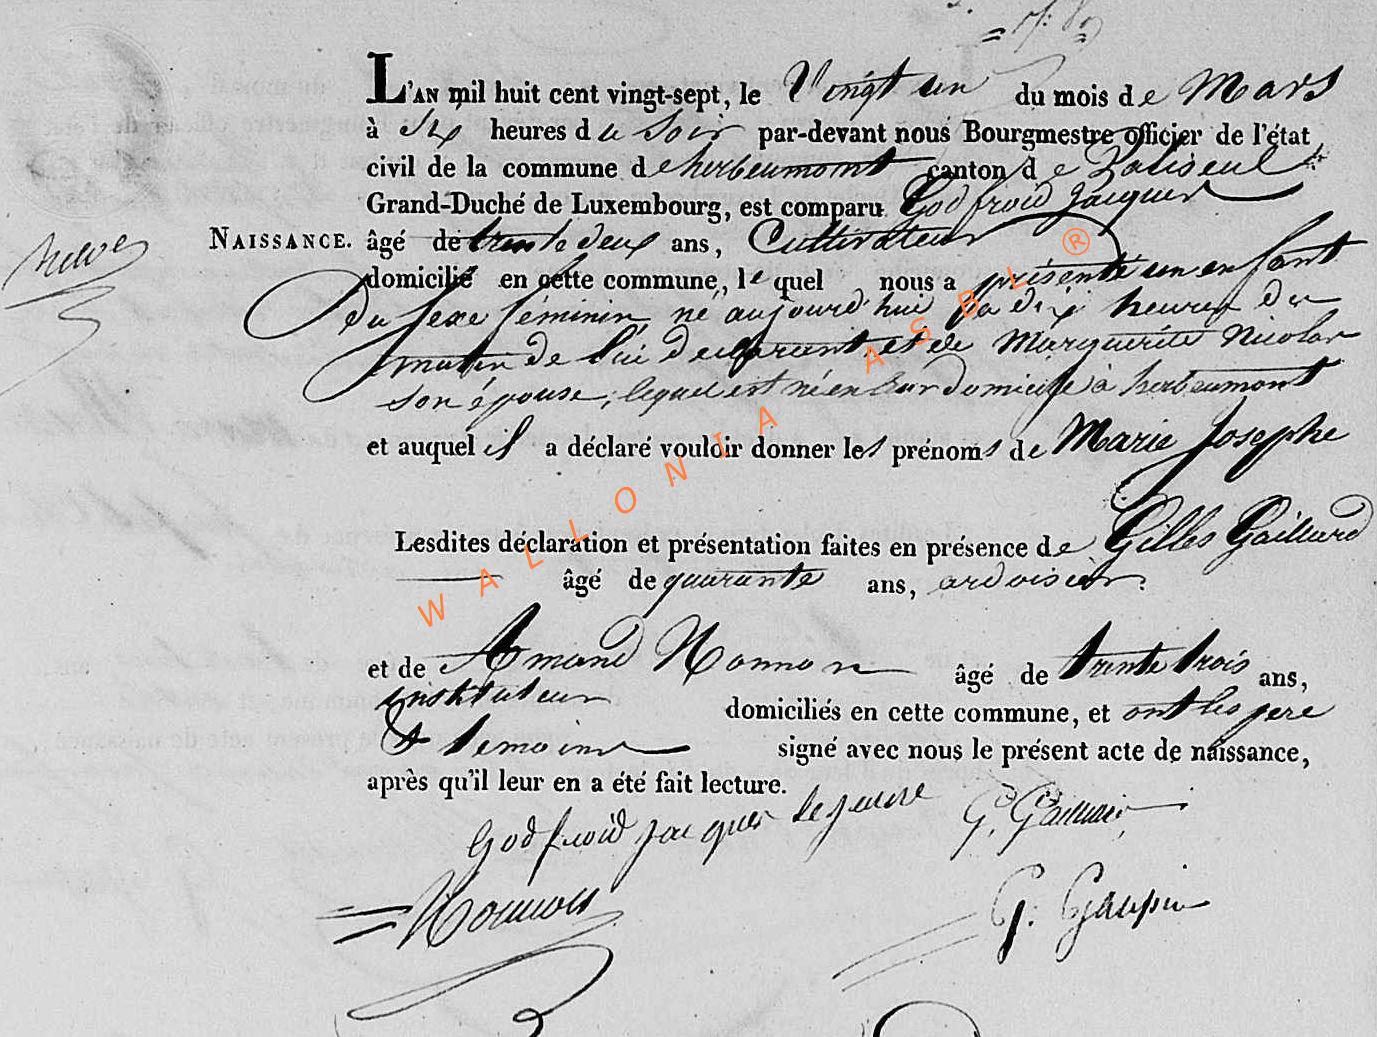 L'AN mil huit cent vingt-sept, le Vingt un du mois de Mars
à six heures du soir par-devant nous Bourgmestre officier de l'état
civil de la commune de herbeumont canton de Paliseul
Grand-Duché de Luxembourg, est comparu Godfroid Jacques
NAISSANCE. âgé de trente deux ans, Cultivateur
domicilié en cette commune, lequel nous a présenté un enfant
du sexe féminin, né aujourd'hui à dix heures du
matin de lui declarant et de Marguerite Nicolas
son épouse, lequel est né en leur domicile à herbeumont
et auquel il a déclaré vouloir donner les prénoms de Marie Josephe
Lesdites déclaration et présentation faites en présence de Gilles Gaillard
âgé de quarante ans, ardoisier
et de Amand Nonnon âgé de trente trois ans,
instituteur domiciliés en cette commune, et ont les pere
& temoins signé avec nous le présent acte de naissance,
après qu'il leur en a été fait lecture.
Godfroid jacques le jeune G. Gaillard
Nonnon G. Gaupin
WALLONIA ASBL ®